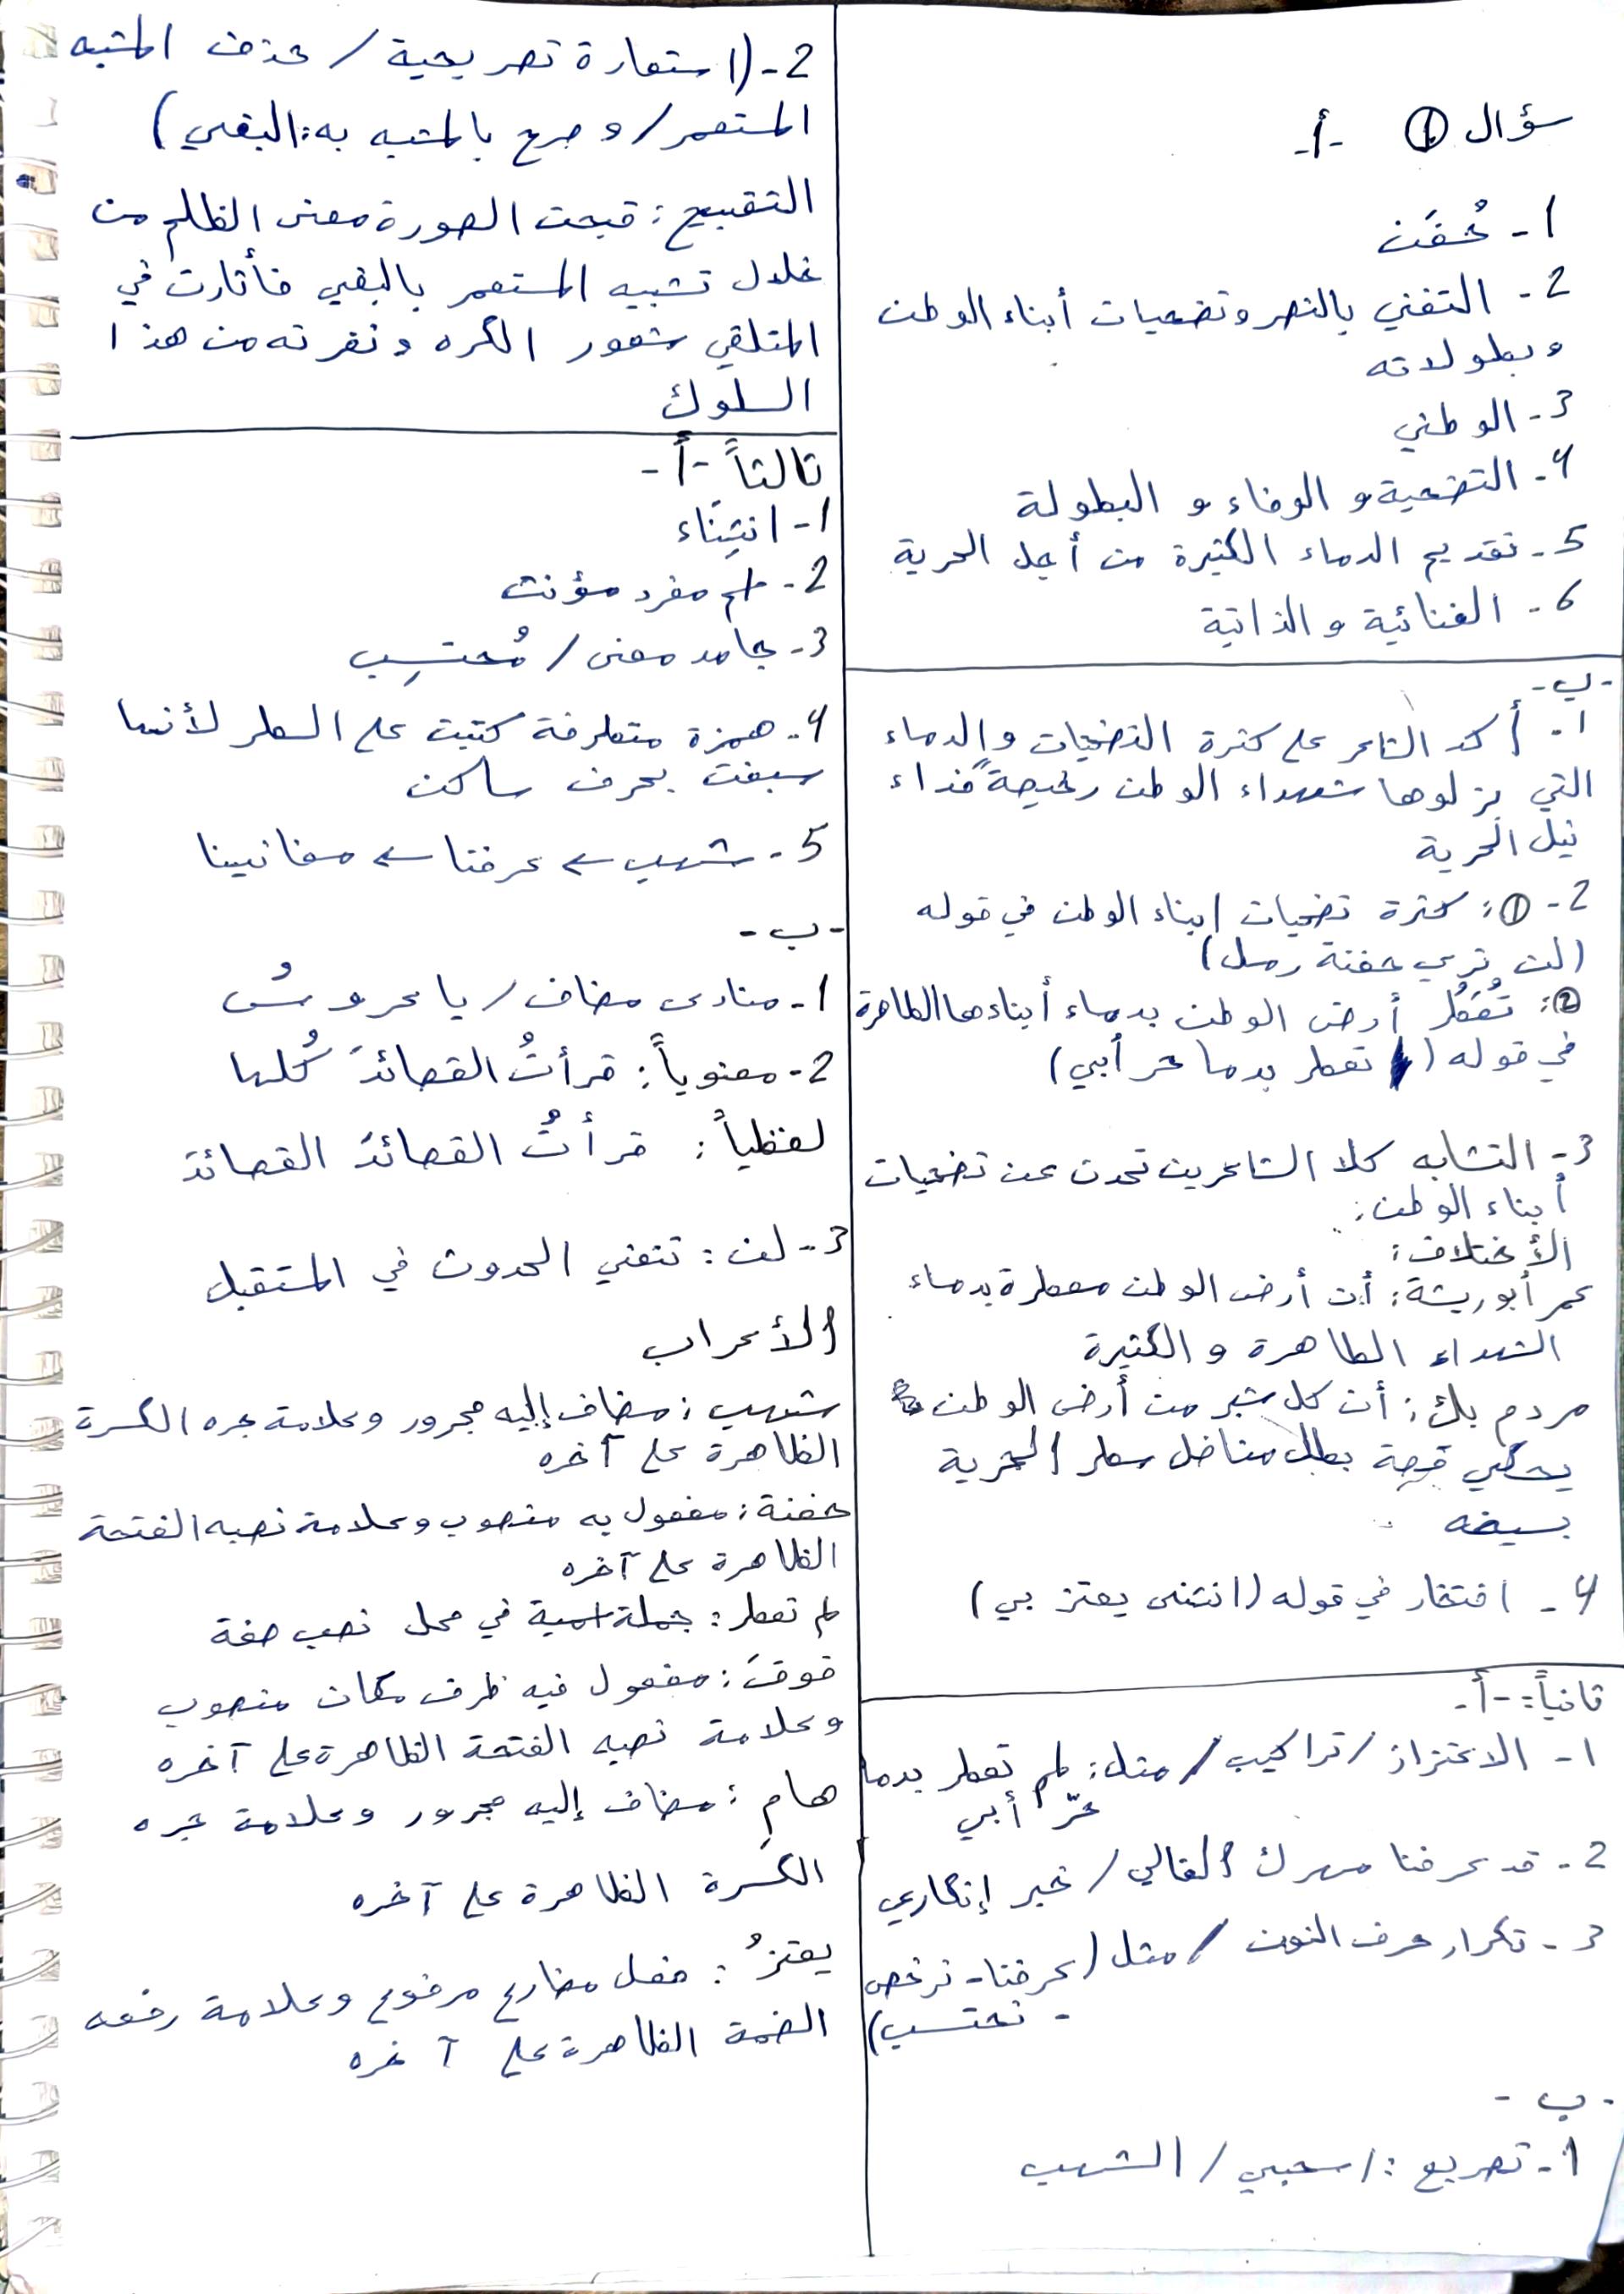 سؤال ① -أ-
1- حُفَن
2- التغني بالنصر وتضحيات أبناء الوطن
وبطولاته
3- الوطني
4- التضحية و الوفاء و البطولة
5- تقديم الدماء الكثيرة من أجل الحرية
6- الغنائية و الذاتية
-ب-
1- أكد الشاعر على كثرة التضحيات والدماء
التي بزلوها شهداء الوطن رخيصةً فداء
نيل الحرية
2- ①: كثرة تضحيات ابناء الوطن في قوله
(لن تري حفنة رمل)
②: تُعَطُر أرض الوطن بدماء أبناءها الطاهرة
في قوله ( تعطر بدما حر أبي)
3- التشابه كلا الشاعرين تحدث عن تضحيات
أبناء الوطن:
الأختلاف:
عمر أبو ريشة: أن أرض الوطن معطرة بدماء
الشهداء الطاهرة و الكثيرة
مردم بك: أن كل شبر من أرض الوطن
يحكي قصة بطل مناضل سطر الحرية
بسيفه
4- افتخار في قوله (انتنى يعتز بي)
ثانياً: -أ-
1- الاختزاز / تراكيب / مثل: لم تعطر بدما
حرّ أبي
2- قد عرفنا مهرك الغالي / خبر إنكاري
3- تكرار حرف النون / مثل (عرفنا- نرخص
- نحتسب)
-ب-
1- تصريع: اسحبي / الشهب
2- (استعارة تصريحية / حذف المشبه
المستعمر / و صرح بالمشبه به: البغي)
التقبيح: قبحت الصورة معنى الظلم من
خلال تشبيه المستعمر بالبغي فأثارت في
المتلقي شعور الكره ونفرته من هذا
السلوك
ثالثاً -أ-
1- انتِناء
2- علم مفرد مؤنث
3- جامد معنى / مُحتسِب
4- همزة متطرفة كتبت على السطر لأنها
سبقت بحرف ساكن
5- شهب ← عرفنا ← مغانيينا
-ب-
1- منادى مضاف / يا عروسُ
2- معنوياً: قرأتُ القصائدَ كُلها
لفظياً: قرأتُ القصائدَ القصائدَ
3- لن: تنفي الحدوث في المتقبل
الأعراب
شهب: مضاف إليه مجرور وعلامة جره الكسرة
الظاهرة على آخره
حفنة: مفعول به منصوب وعلامة نصبه الفتحة
الظاهرة على آخره
لم تعطر: جملة اسمية في محل نصب صفة
فوقَ: مفعول فيه ظرف مكان منصوب
وعلامة نصبه الفتحة الظاهرة على آخره
هامِ: مضاف إليه مجرور وعلامة جره
الكسرة الظاهرة على آخره
يعتزُ: فعل مضارع مرفوع وعلامة رفعه
الضمة الظاهرة على آخره